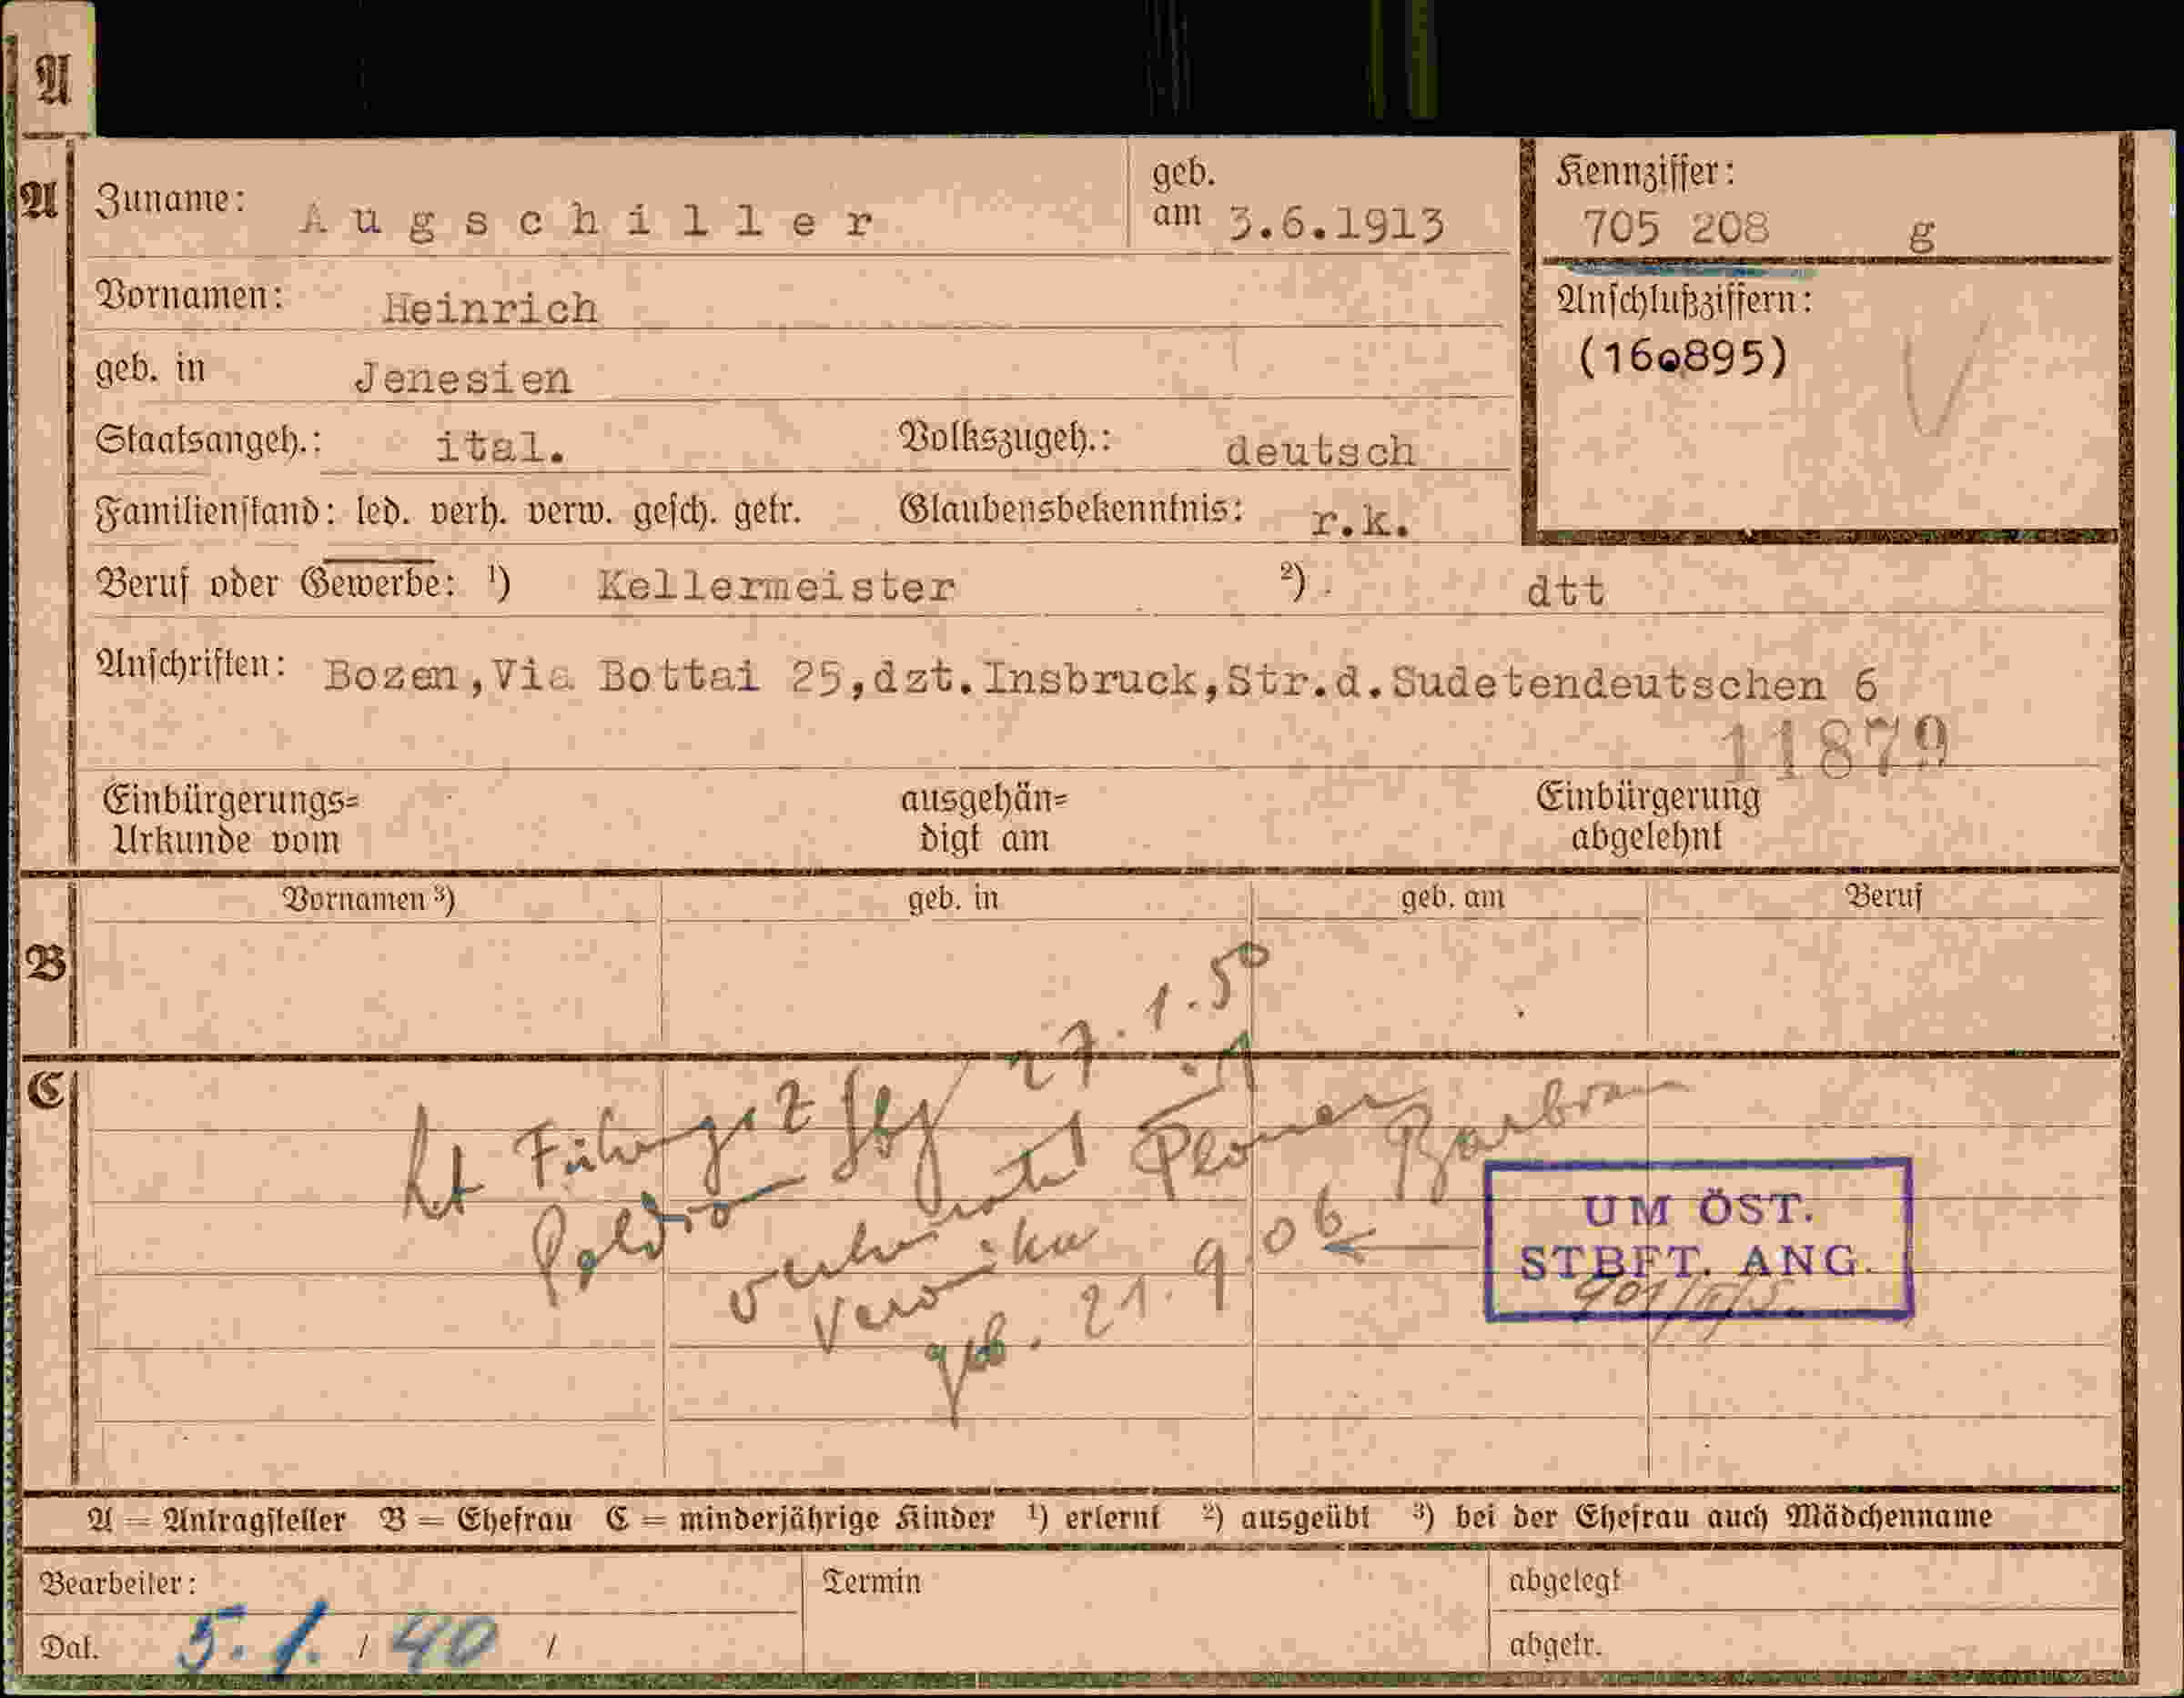 A
A
Zuname: Augschiller
geb. am 3.6.1913
Kennziffer:
705 208 g
Vornamen: Heinrich
Anschlußziffern:
(160895)
geb. in Jenesien
Staatsangeh.: ital. Volkszugeh.: deutsch
Familienstand: led. verh. verw. gesch. getr. Glaubensbekenntnis: r.k.
Beruf oder Gewerbe: ¹) Kellermeister ²) dtt
Anschriften: Bozen,Via Bottai 25,dzt.Insbruck,Str.d.Sudetendeutschen 6
11879
Einbürgerungs= ausgehän= Einbürgerung
Urkunde vom digt am abgelehnt
Vornamen ³) geb. in geb. am Beruf
B
C
27.1.50
verheiratet Ploner Barbara
Veronika
geb. 21.9.06
UM ÖST.
STBFT. ANG.
A = Antragsteller B = Ehefrau C = minderjährige Kinder ¹) erlernt ²) ausgeübt ³) bei der Ehefrau auch Mädchenname
Bearbeiter: Termin abgelegt
Dat. 5.1. / 40 / abgetr.